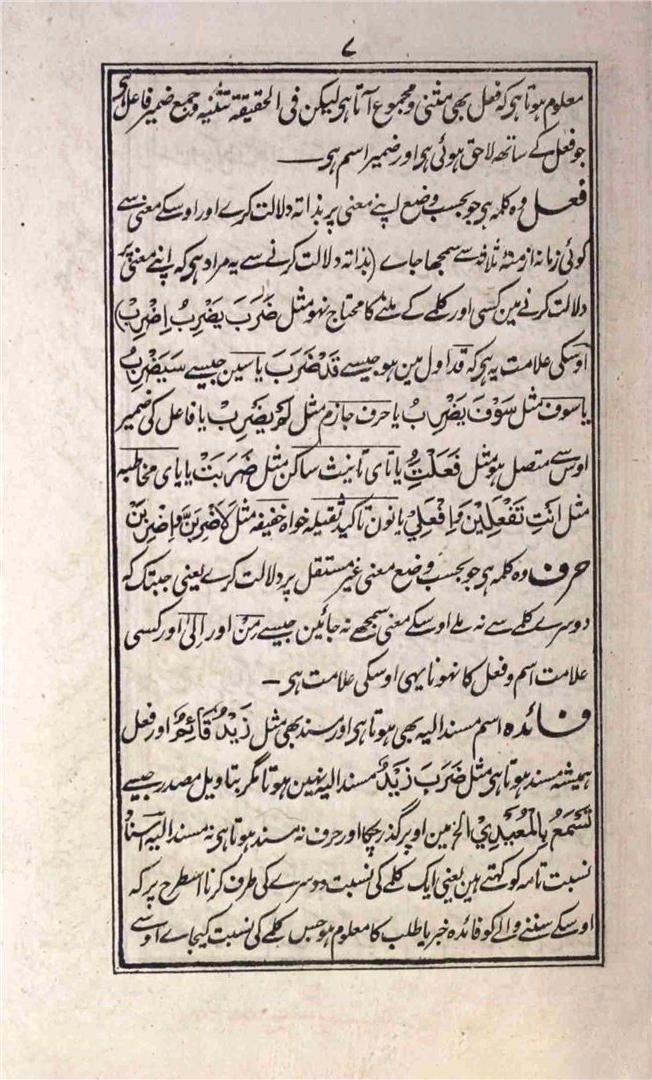 ۷
معلوم ہوتا ہی کہ فعل بھی مثنی و مجموع آتا ہی لیکن فی الحقیقۃ تثنیہ و جمع ضمیر فاعل ہی
جو فعل کے ساتھ لاحق ہوئی ہی اور ضمیر اسم ہی۔
فعل وہ کلمہ ہی جو بحسب وضع اپنے معنی پر بذاتہ دلالت کرے اور اوسکے معنی سے
کوئی زمانہ ازمنۂ ثلاثہ سے سمجھا جاے (بذاتہ دلالت کرنے سے یہ مراد ہی کہ اپنے معنی پر
دلالت کرنے مین کسی اور کلمے کے ملنے کا محتاج نہو مثل ضَرَبَ یَضْرِبُ اِضْرِبْ)
اوسکی علامت یہ ہی کہ قد اول مین ہو جیسے قَدْ ضَرَبَ یا سین جیسے سَیَضْرِبُ
یا سوف مثل سَوْفَ یَضْرِبُ یا حرف جازم مثل لَمْ یَضْرِبْ یا فاعل کی ضمیر
اوس سے متصل ہو مثل فَعَلْتُ یا تای تانیث ساکن مثل ضَرَبَتْ یا یای مخاطبہ
مثل اَنْتِ تَفْعَلِیْنَ وَاِفْعَلِیْ یا نون تاکید ثقیلہ خواہ خفیفہ مثل لَاَضْرِبَنَّ وَاِضْرِبَنْ
حرف وہ کلمہ ہی جو بحسب وضع معنی غیر مستقل پر دلالت کرے یعنی جبتک کہ
دوسرے کلمے سے نہ ملے اوسکے معنی سمجھے نہ جائین جیسے مِنْ اور اِلیٰ اور کسی
علامت اسم و فعل کا نہونا یہی اوسکی علامت ہی۔
فائدہ اسم مسند الیہ بھی ہوتا ہی اور مسند بھی مثل زَیْدٌ قَائِمٌ اور فعل
ہمیشہ مسند ہوتا ہی مثل ضَرَبَ زَیْدٌ مسند الیہ نہین ہوتا مگر بتاویل مصدر جیسے
تَسْمَعُ بِالْمُعَیْدِیْ الخ مین اوپر گذر چکا اور حرف نہ مسند ہوتا ہی نہ مسند الیہ اسناد
نسبت تامہ کو کہتے ہین یعنی ایک کلمے کی نسبت دوسرے کی طرف کرنا اسطرح پر کہ
اوسکے سننے والے کو فائدہ خبر یا طلب کا معلوم ہو جس کلمے کی نسبت کیجاے اوسے